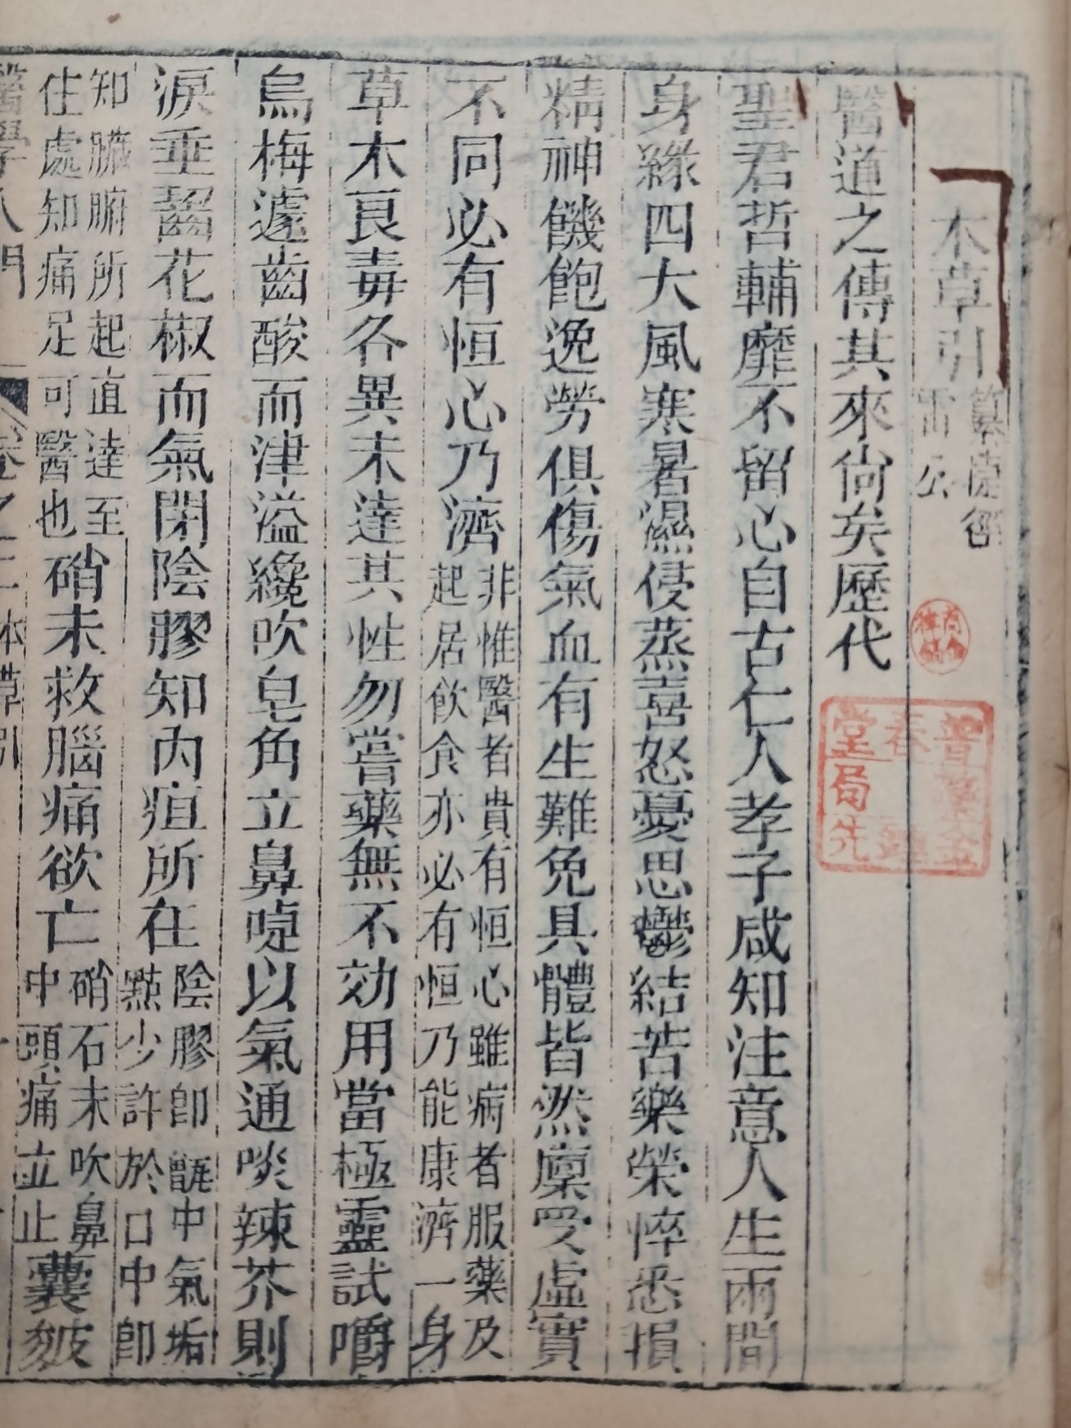 本草引
雷公
醫道之傳其來尙矣歷代
聖君哲輔靡不留心自古仁人孝子咸知注意人生兩間
身緣四大風寒暑濕侵蒸喜怒憂思鬱結苦樂榮悴悉損
精神饑飽逸勞俱傷氣血有生難免具體皆然廩受虛實
不同必有恒心乃濟
非惟醫者貴有恒心雖病者服藥及
起居飲食亦必有恒乃能康濟一身
草木良毒各異未達其性勿嘗藥無不効用當極靈試嚼
烏梅遽齒酸而津溢纔吹皂角立鼻嚏以氣通啖辣芥則
淚垂齧花椒而氣閉陰膠知內疽所在
陰膠卽甑中氣垢
㸃少許於口中卽
知臟腑所起直達至
住處知痛足可醫也
硝末救腦痛欲亡
硝石末吹鼻
中頭痛立止
囊皺
醫學入門
卷之二本草引
普草堂局先